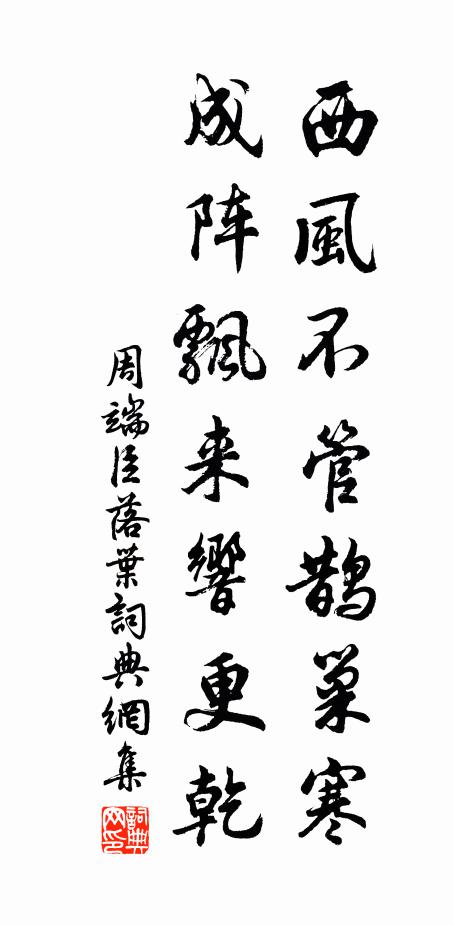 西風不管鹊巢寒
成阵飄来響更乾
周端臣落葉詞典網集
詞典网印